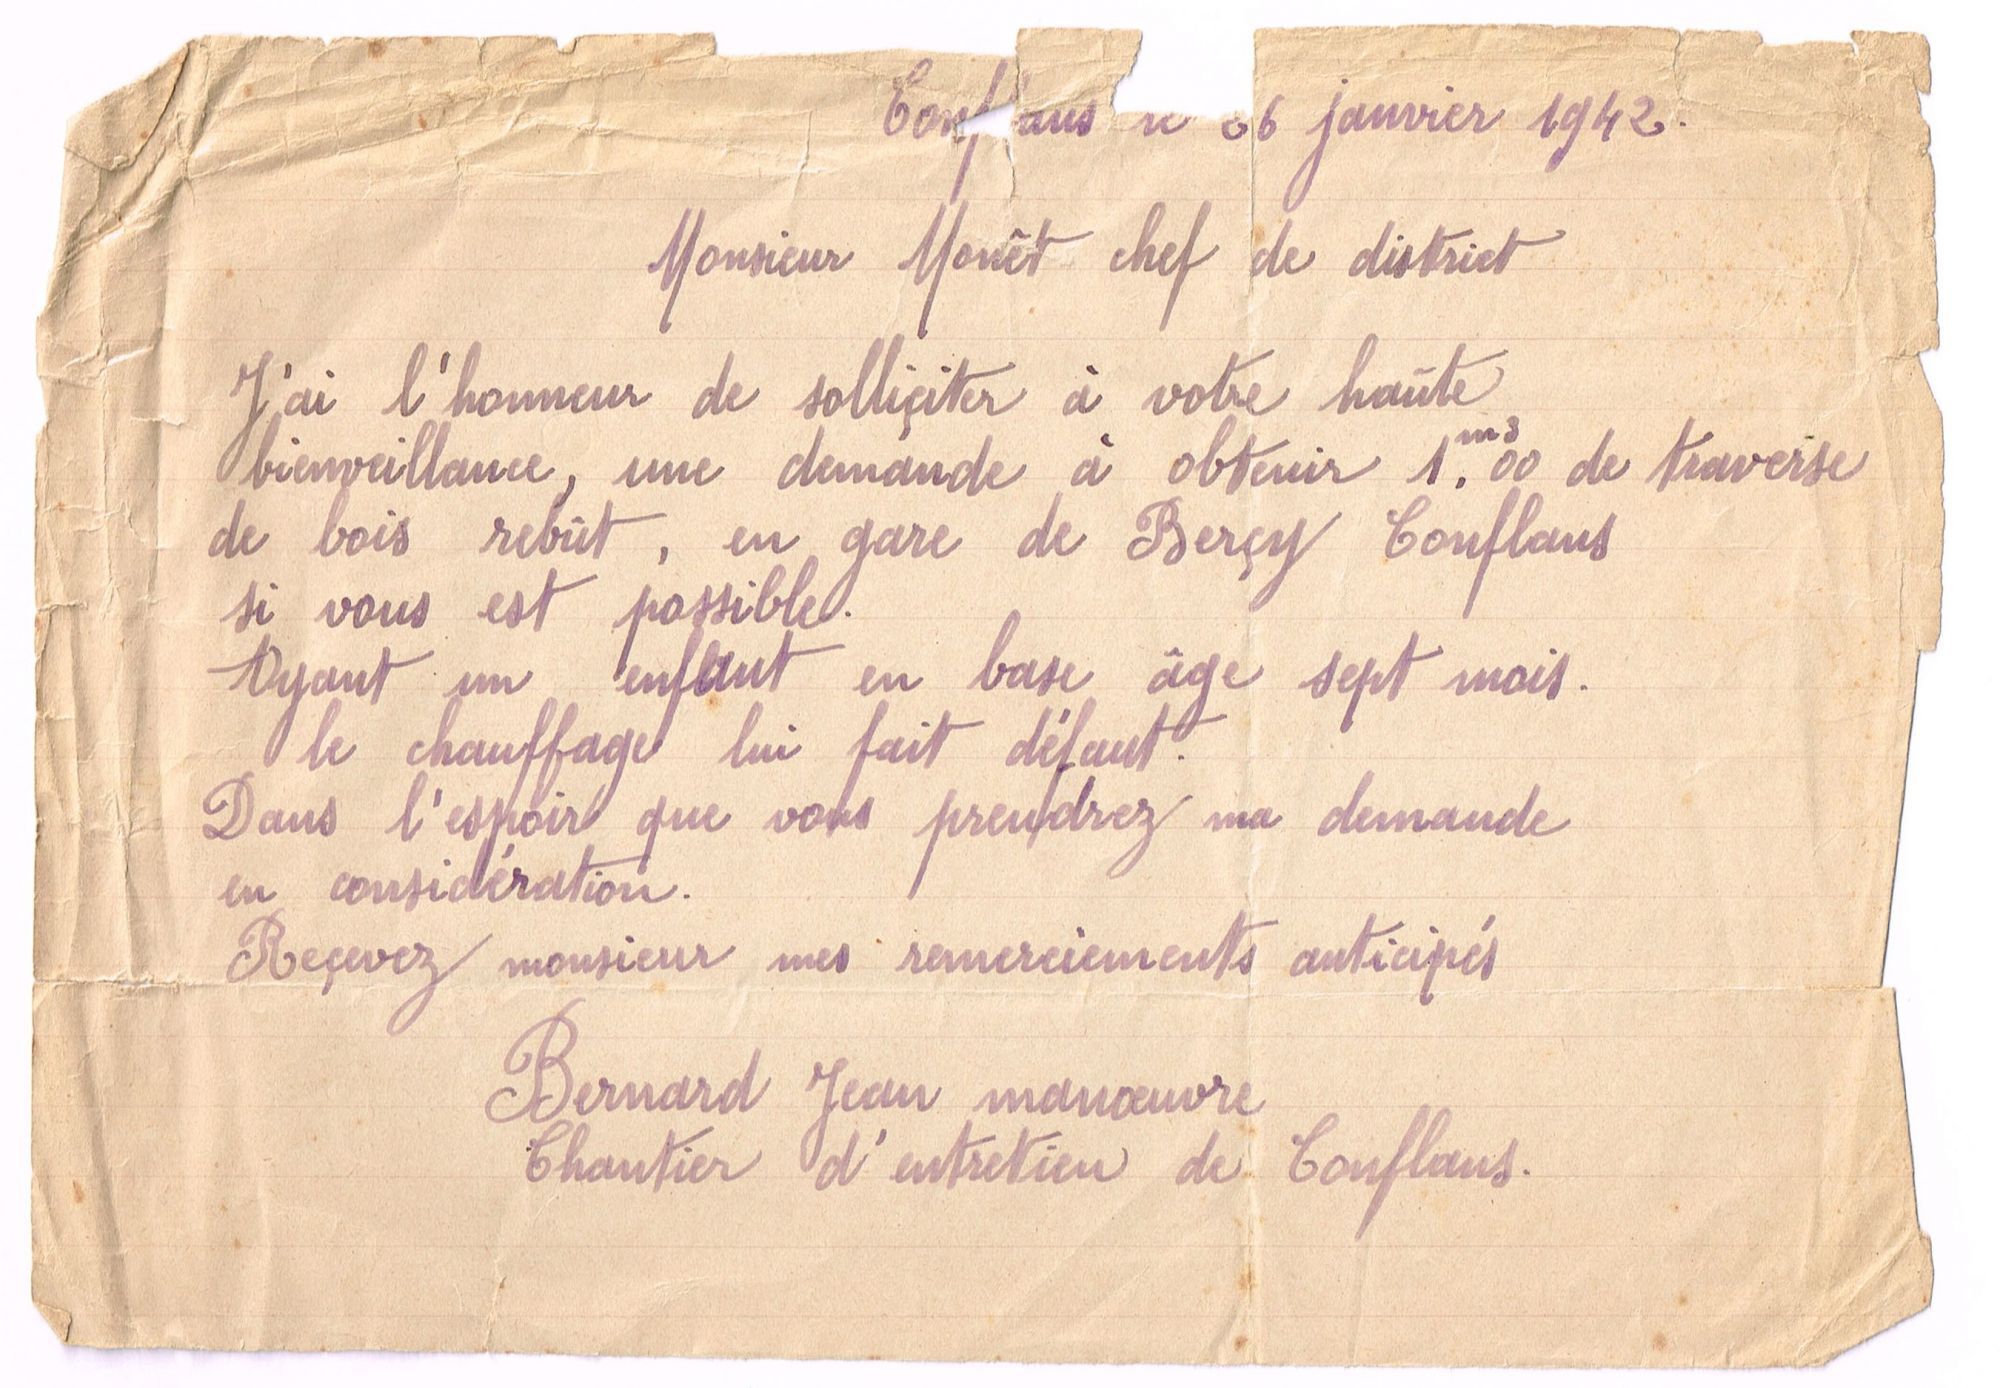 Conflans le 26 janvier 1942.
Monsieur Monêt chef de district
J'ai l'honneur de solliçiter à votre haûte
bienveillance, une demande à obtenir 1.m3 00 de traverse
de bois rebût, en gare de Berçy Conflans
si vous est possible.
Ayant un enfant en base âge sept mois.
le chauffage lui fait défaut.
Dans l'espoir que vous prendrez ma demande
en considération.
Reçevez monsieur mes remerciements anticipés
Bernard Jean manœuvre
Chantier d'entretien de Conflans.